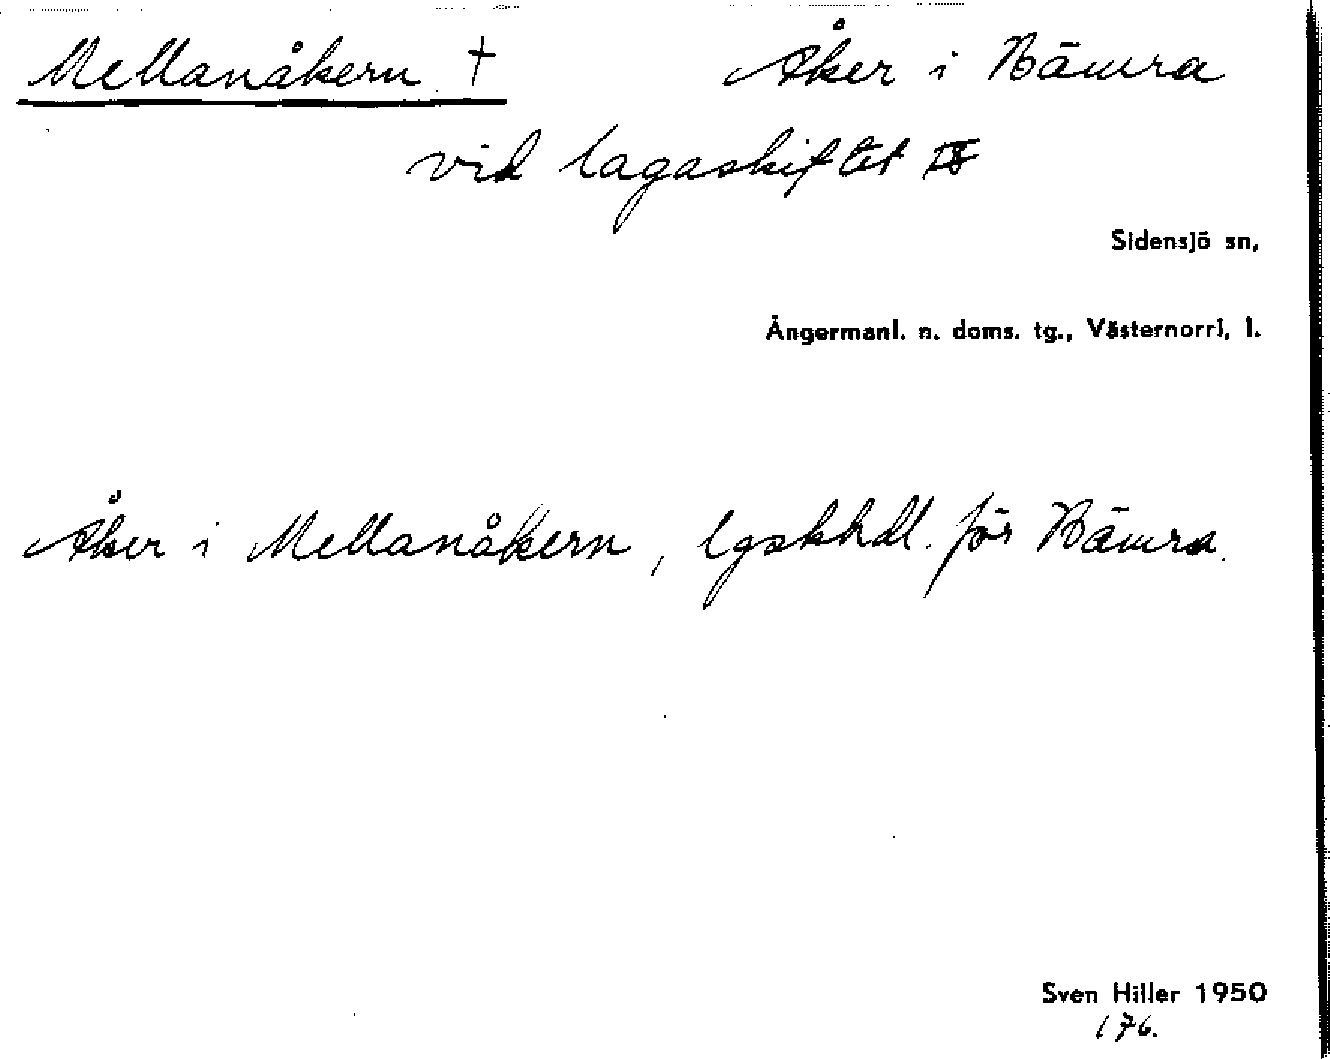 Mellanåkern † Åker i Bämra
vid lagaskiftet
Sidensjö sn,
Ångermanl. n. doms. tg., Västernorrl, l.
Åker i Mellanåkern, lgskhdl. för Bämra.
Sven Hiller 1950
176.